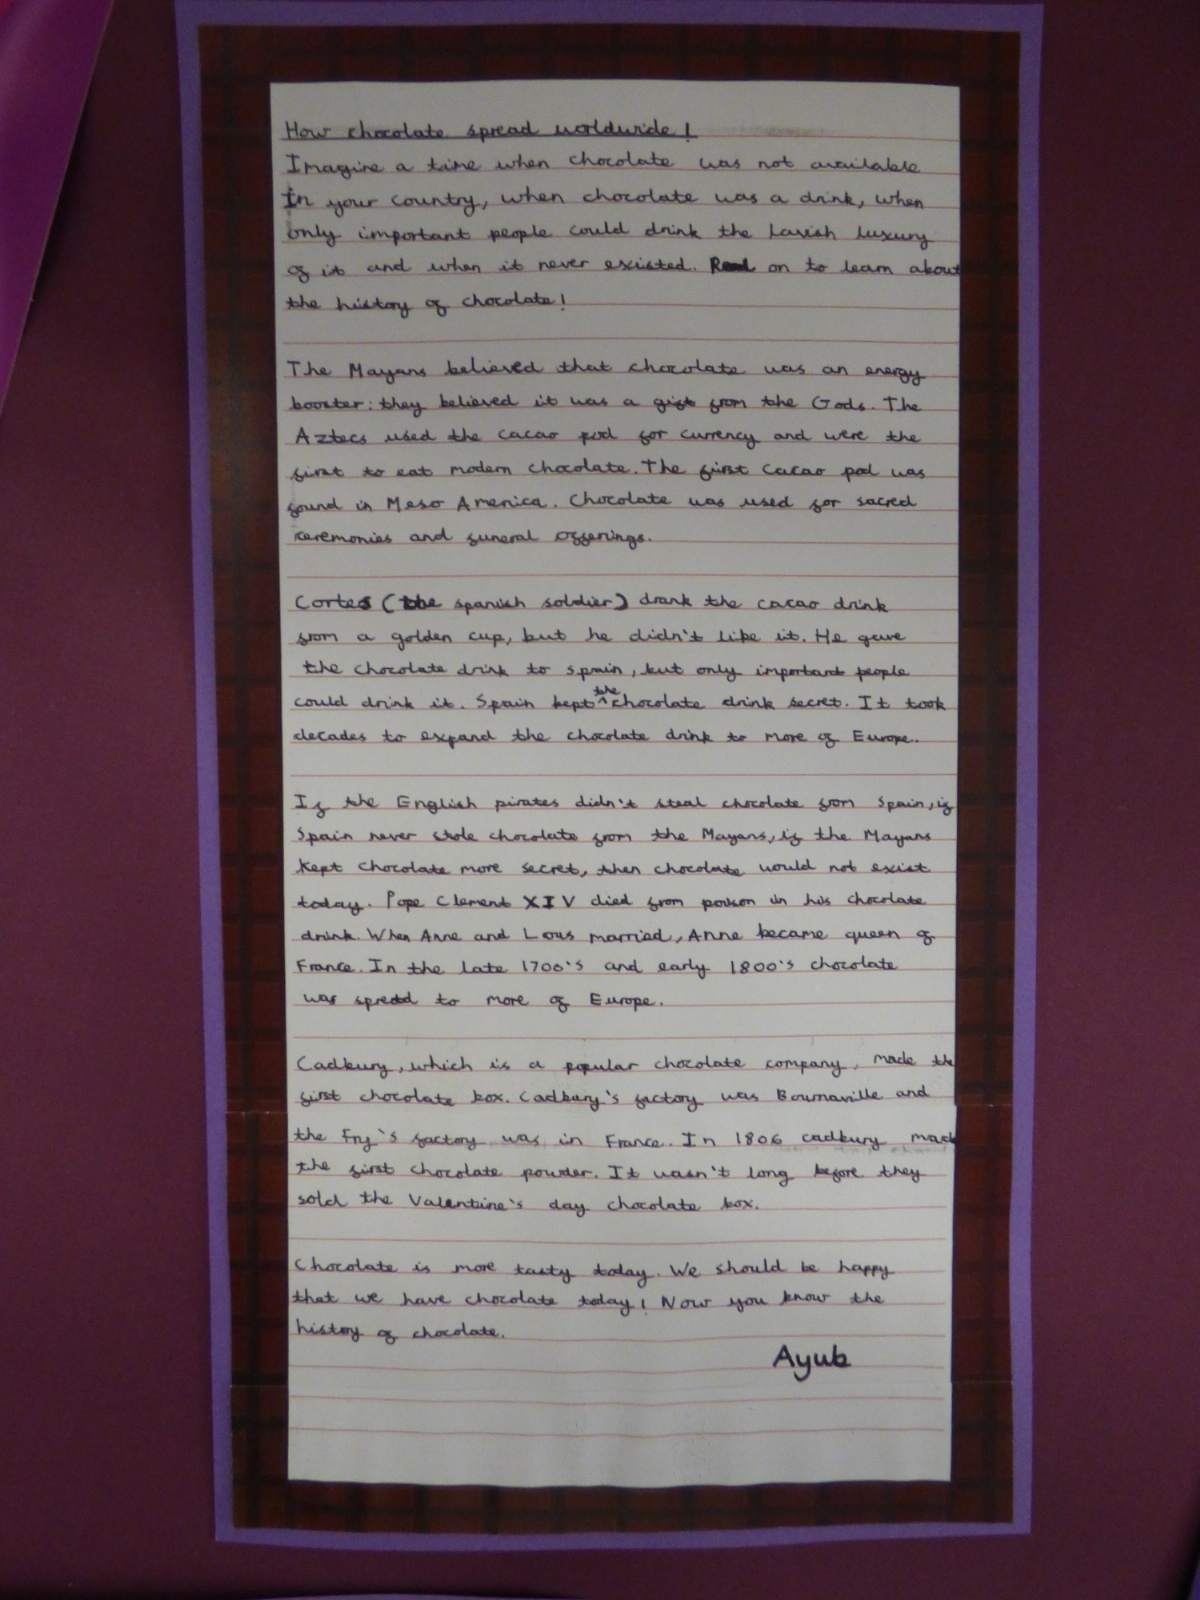 How chocolate spread worldwide!
Imagine a time when chocolate was not available
In your country, when chocolate was a drink, when
only important people could drink the lavish luxury
of it and when it never existed. Read on to learn about
the history of chocolate!
The Mayans believed that chocolate was an energy
booster: they believed it was a gift from the Gods. The
Aztecs used the cacao pod for currency and were the
first to eat modern chocolate. The first cacao pod was
found in Meso America. Chocolate was used for sacred
ceremonies and funeral offerings.
Cortes (the spanish soldier) drank the cacao drink
from a golden cup, but he didn't like it. He gave
the chocolate drink to spain, but only important people
could drink it. Spain kept the chocolate drink secret. It took
decades to expand the chocolate drink to more of Europe.
If the English pirates didn't steal chocolate from Spain, if
Spain never stole chocolate from the Mayans, if the Mayans
kept chocolate more secret, then chocolate would not exist
today. Pope Clement XIV died from poison in his chocolate
drink. When Anne and Lous married, Anne became queen of
France. In the late 1700's and early 1800's chocolate
was spread to more of Europe.
Cadbury, which is a popular chocolate company, made the
first chocolate box. Cadbury's factory was Bournaville and
the Fry's factory was in France. In 1806 cadbury mad
the first chocolate powder. It wasn't long before they
sold the Valentine's day chocolate box.
Chocolate is more tasty today. We should be happy
that we have chocolate today! Now you know the
history of chocolate.
Ayub